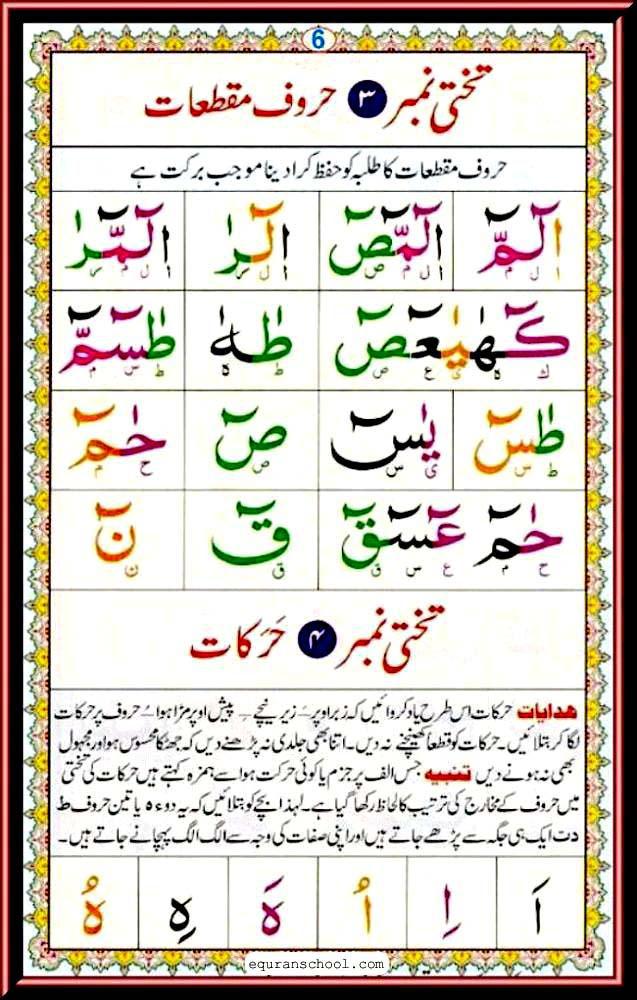 6
تختی نمبر ۳ حروف مقطعات
حروف مقطعات کا طلبہ کو حفظ کرا دینا موجب برکت ہے
الٓمّٓ الٓمّٓصٓ الٓرٰ الٓمّٓرٰ
ا ل م ا ل م ص ا ل ر ا ل م ر
كٓهٰيٰعٓصٓ طٰهٰ طٰسٓمّٓ
ك ه ى ع ص ط ه ط س م
طٰسٓ يٰسٓ صٓ حٰمٓ
ط س ى س ص ح م
حٰمٓ عٓسٓقٓ قٓ نٓ
ح م ع س ق ق ن
تختی نمبر ۴ حَرَکات
ھدایات حرکات اس طرح یاد کروائیں کہ زبر اوپر ـَـ زیر نیچے ـِـ پیش اوپر مڑا ہوا ـُـ حروف پر حرکات
لگا کر بتلائیں۔ حرکات کو قطعاً کھینچنے نہ دیں۔ اتنا بھی جلدی نہ پڑھنے دیں کہ جھٹکا محسوس ہو اور مجہول
بھی نہ ہونے دیں تنبیہ جس الف پر جزم یا کوئی حرکت ہو اسے ہمزہ کہتے ہیں حرکات کی تختی
میں حروف کے مخارج کی ترتیب کا لحاظ رکھا گیا ہے۔ لہذا بچے کو بتلائیں کہ یہ دو ء ہ یا تین حروف ط
د ت ایک ہی جگہ سے پڑھے جاتے ہیں اور اپنی صفات کی وجہ سے الگ الگ پہچانے جاتے ہیں۔
اَ اِ اُ هَ هِ هُ
equranschool.com